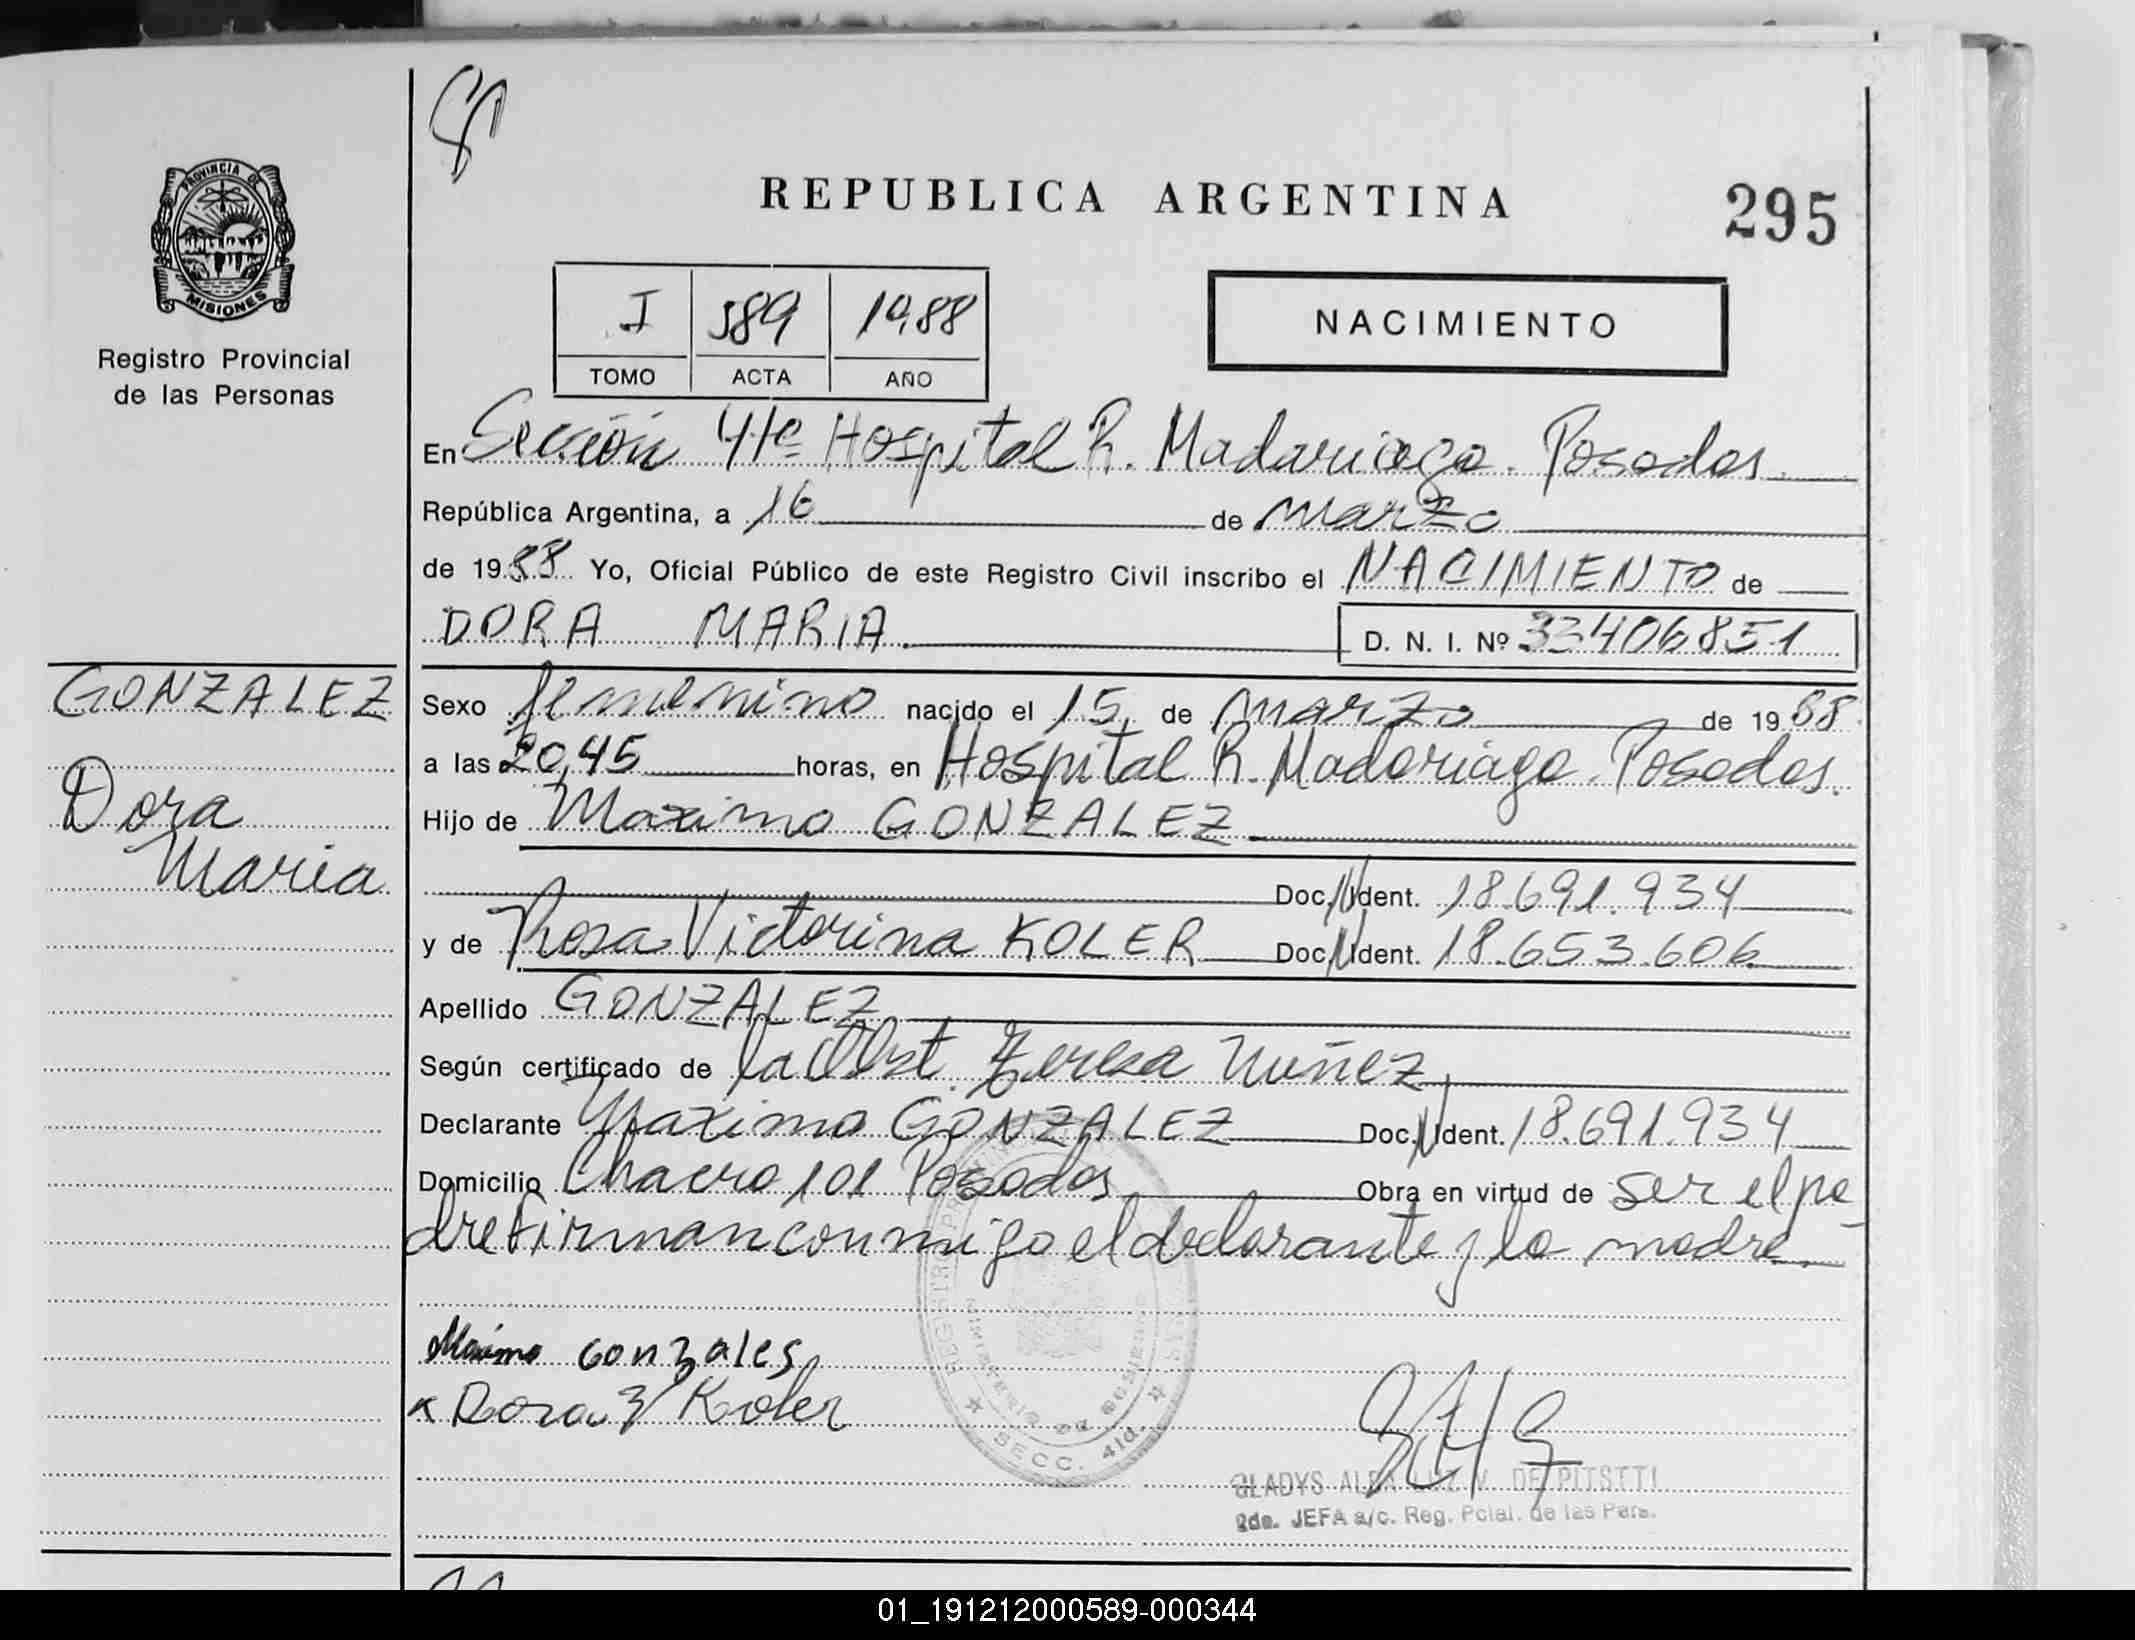 PROVINCIA DE
MISIONES
Registro Provincial
de las Personas
REPUBLICA ARGENTINA
295
I 589 1988
TOMO ACTA AÑO
NACIMIENTO
En Sección 4ta Hospital R. Madariaga. Posadas
República Argentina, a 16 de marzo
de 1988 Yo, Oficial Público de este Registro Civil inscribo el NACIMIENTO de
DORA MARIA D. N. I. Nº 33406851
GONZALEZ
Dora
Maria
Sexo femenino nacido el 15, de marzo de 1988
a las 20,45 horas, en Hospital R. Madariaga. Posadas.
Hijo de Maximo GONZALEZ
Doc. Ident. 18.691.934
y de Rosa Victorina KOLER Doc. Ident. 18.653.606
Apellido GONZALEZ
Según certificado de la Obst. Teresa Nuñez
Declarante Maximo GONZALEZ Doc. Ident. 18.691.934
Domicilio Chacra 101 Posadas Obra en virtud de ser el pa-
dre firman conmigo el declarante y la madre.
Maximo Gonzales
Koler
REGISTRO
MINISTERIO DE GOBIERNO
SECC. 4ta.
GLADYS ALBA LUZ V. DE PITSTTI
2da. JEFA a/c. Reg. Pcial. de las Pers.
01_191212000589-000344